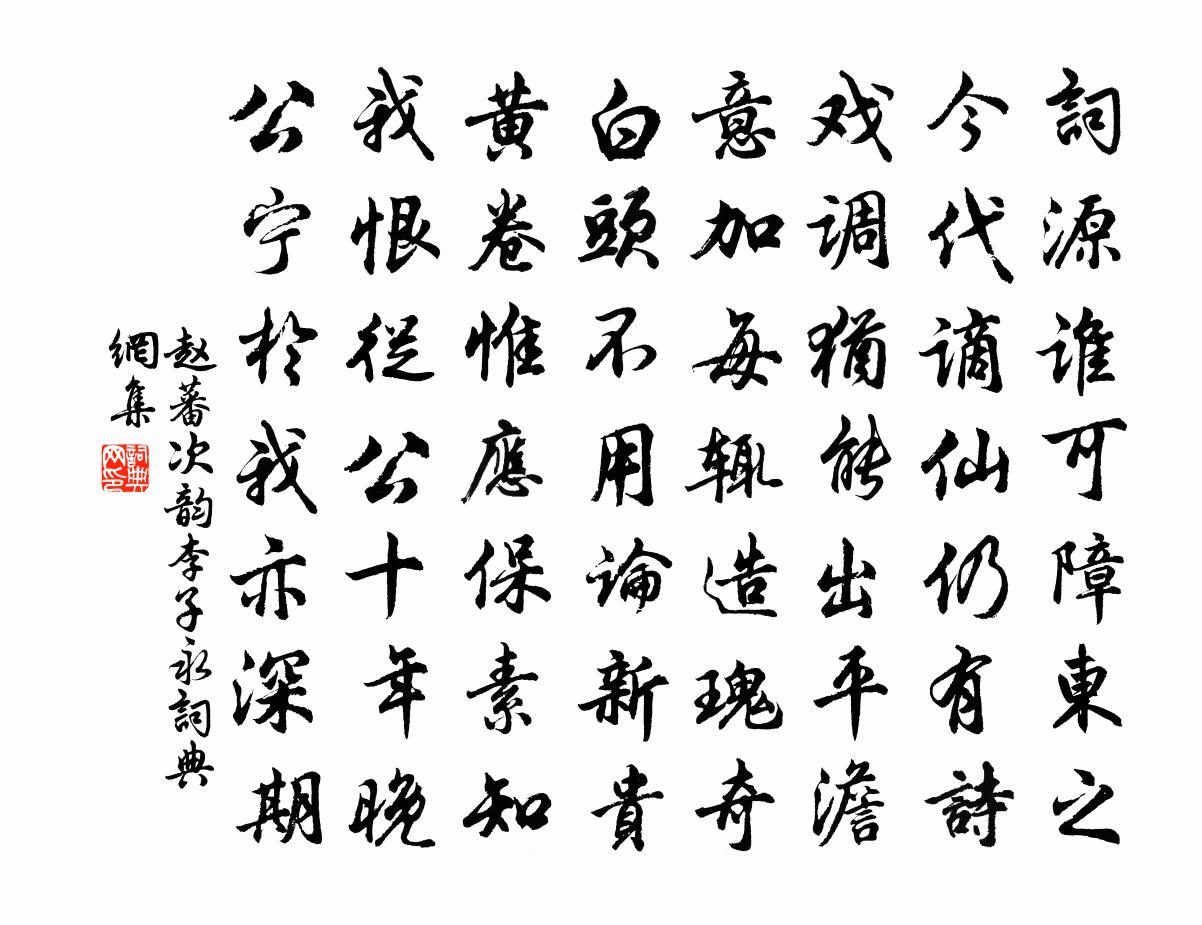 詞源谁可障東之
今代谪仙仍有詩
戏调猶能出平澹
意加每辄造瑰奇
白頭不用論新貴
黄卷惟應保素知
我恨從公十年晚
公宁於我亦深期
赵蕃次韵李子永詞典
網集
詞典
网印